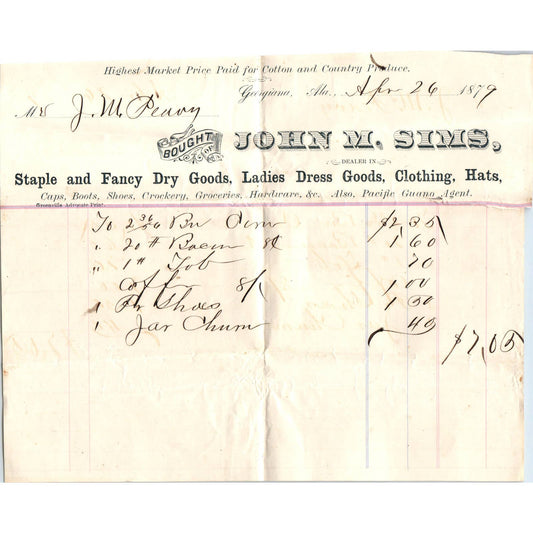 Highest Market Price Paid for Cotton and Country Produce.
Georgiana, Ala. Apr 26 1879
M J. M. Peavy
BOUGHT OF JOHN M. SIMS,
DEALER IN
Staple and Fancy Dry Goods, Ladies Dress Goods, Clothing, Hats,
Caps, Boots, Shoes, Crockery, Groceries, Hardware, &c. Also, Pacific Guano Agent.
Greenville Advocate Print.
To 2 36/56 Bu Corn $2,35
" 20 # Bacon 8¢ 1 60
" 1 # Tob 70
Coffee 8/1 1,00
1 Pr Shoes 1 00
1 Jar Churn 40
$7,05